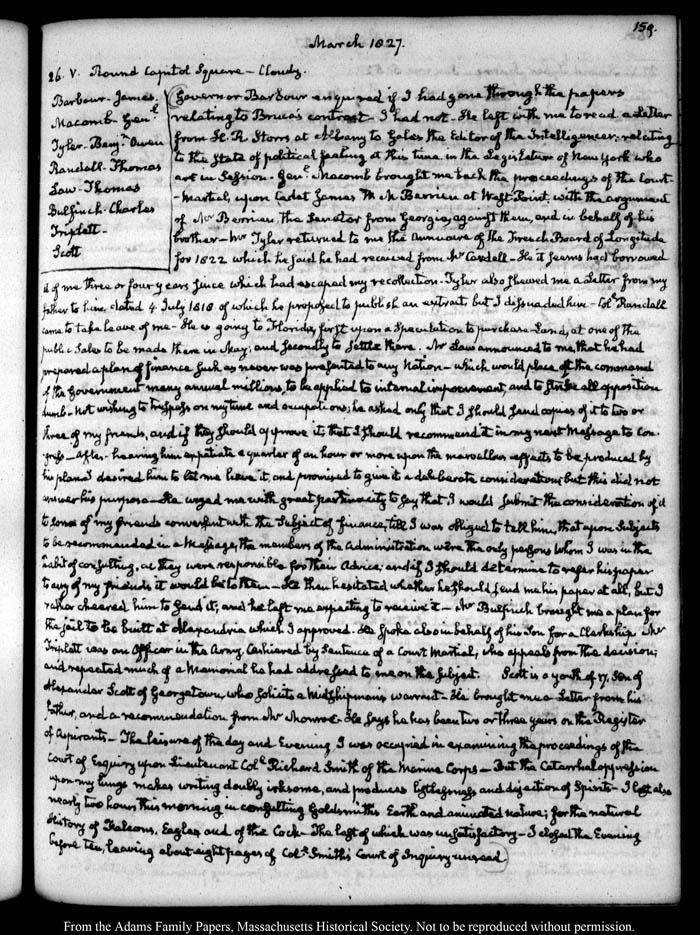 159.
March 1827.
26. V. Round Capitol Square — Cloudy.
Barbour-James.
Macomb Genl.
Tyler-Benjn. Owen
Randall-Thomas
Law-Thomas
Bulfinch-Charles
Triplett-
Scott
Governor Barbour enquired if I had gone through the papers
relating to Bruce's contrast. I had not. He left with me to read a Letter
from H. R Storrs at Albany to Gales the Editor of the Intelligencer, relating
to the State of political feeling at this time in the Legislature of New York who
are in Session. Genl. Macomb brought me back the proceedings of the Court-
-Martial, upon Cadet James W. M. Berrien at West Point, with the argument
of Mr Berrien, the Senator from Georgia, against them, and in behalf of his
brother — Mr Tyler returned to me the Annuaire of the French Board of Longitude
for 1822 which he said he had received from Mr Cardell — He it seems had borrowed
it of me three or four years since which had escaped my recollection. Tyler also shewed me a Letter from my
father to him, dated 4 July 1818 of which he proposed to publish an extract but I dissuaded him — Coll. Randall
came to take leave of me — He is going to Florida, first upon a Speculation to purchase Land, at one of the
public Sales to be made there in May; and secondly to settle there. Mr Law announced to me, that he had
prepared a plan of finance such as never was presented to any Nation — which would place at the command
of the Government many annual millions, to be applied to internal improvement, and to strike all opposition
dumb — Not wishing to trespass on my time and occupations, he asked only that I should send copies of it to two or
three of my friends, and if they should approve it, that I should recommend it in my next Message to Con-
gress — After hearing him expatiate a quarter of an hour or more upon the marvellous effects to be produced by
his plan I desired him to let me have it, and promised to give it a deliberate consideration, but this did not
answer his purpose — He urged me with great pertinacity to say that I would submit the consideration of it
to some of my friends conversant with the subject of finance, till I was obliged to tell him, that upon Subjects
to be recommended in a Message, the members of the Administration were the only persons whom I was in the
habit of consulting, as they were responsible for their Advice, and if I should determine to refer his paper
to any of my friends it would be to them — He then hesitated whether he should send me his paper at all, but I
rather cheered him to send it, and he left me expecting to receive it — Mr Bulfinch brought me a plan for
the jail to be built at Alexandria which I approved. He spoke also in behalf of his Son for a Clerkship. Mr
Triplett was an Officer in the Army, Cashiered by Sentence of a Court Martial, who appeals from the decision;
and repeated much of a Memorial he had addressed to me on the Subject. Scott is a youth of 17, Son of
Alexander Scott of Georgetown, who solicits a Midshipman's warrant — He brought me a Letter from his
father, and a recommendation from Mr Monroe. He says he has been two or three years on the Register
of Aspirants — The leisure of the day and Evening I was occupied in examining the proceedings of the
Court of Enquiry upon Lieutenant Coll. Richard Smith of the Marine Corps — But the Catarrhal oppression
upon my lungs makes writing doubly irksome, and produces listlessness and dejection of Spirits — I lost also
nearly two hours this morning in consulting Goldsmiths Earth and animated nature; for the natural
History of Falcons, Eagles and of the Cock — The last of which was unsatisfactory — I closed the Evening
before ten, leaving about eight pages of Coll. Smith's Court of Inquiry unread
From the Adams Family Papers, Massachusetts Historical Society. Not to be reproduced without permission.